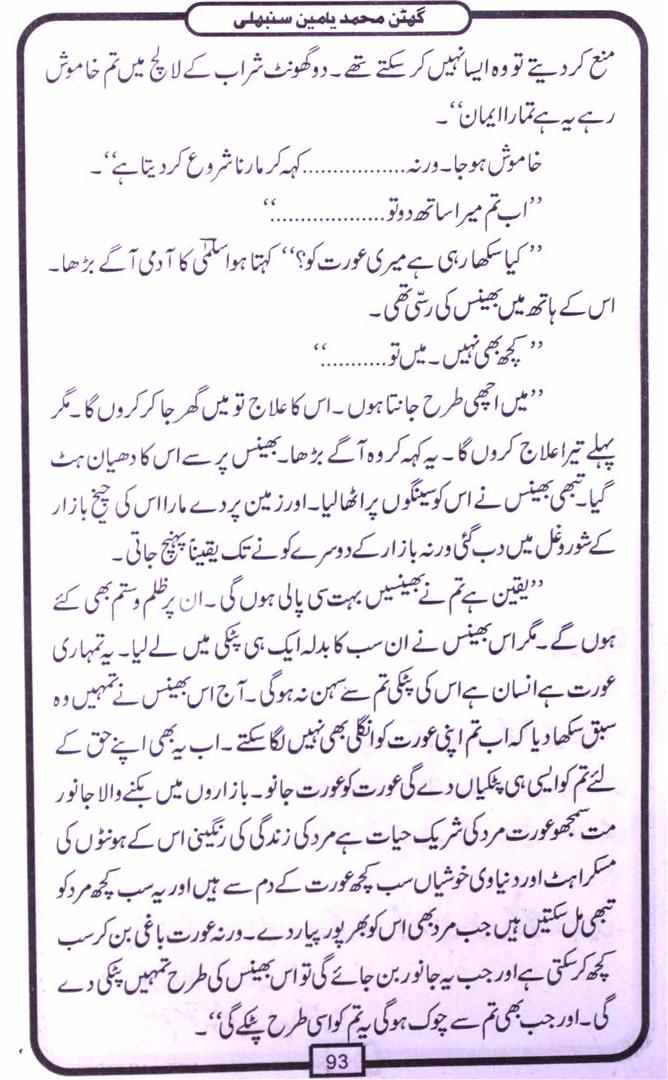 گھٹن محمد یامین سنبھلی
منع کر دیتے تو وہ ایسا نہیں کر سکتے تھے۔ دو گھونٹ شراب کے لالچ میں تم خاموش
رہے یہ ہے تمارا ایمان‘‘۔
خاموش ہو جا۔ ورنہ..................کہہ کر مارنا شروع کر دیتا ہے‘‘۔
’’اب تم میرا ساتھ دو تو....................‘‘
’’کیا سکھا رہی ہے میری عورت کو؟‘‘ کہتا ہوا سلمٰی کا آدمی آگے بڑھا۔
اس کے ہاتھ میں بھینس کی رسّی تھی۔
’’کچھ بھی نہیں۔ میں تو...........‘‘
’’میں اچھی طرح جانتا ہوں۔ اس کا علاج تو میں گھر جا کر کروں گا۔ مگر
پہلے تیرا علاج کروں گا۔ یہ کہہ کر وہ آگے بڑھا۔ بھینس پر سے اس کا دھیان ہٹ
گیا۔ تبھی بھینس نے اس کو سینگوں پر اٹھا لیا۔ اور زمین پر دے مارا اس کی چیخ بازار
کے شور و غل میں دب گئی ورنہ بازار کے دوسرے کونے تک یقیناً پہنچ جاتی۔
’’یقین ہے تم نے بھینسیں بہت سی پالی ہوں گی۔ ان پر ظلم و ستم بھی کئے
ہوں گے۔ مگر اس بھینس نے ان سب کا بدلہ ایک ہی پٹکی میں لے لیا۔ یہ تمہاری
عورت ہے انسان ہے اس کی پٹکی تم سے سہن نہ ہوگی۔ آج اس بھینس نے تمہیں وہ
سبق سکھا دیا کہ اب تم اپنی عورت کو انگلی بھی نہیں لگا سکتے۔ اب یہ بھی اپنے حق کے
لئے تم کو ایسی ہی پٹکیاں دے گی عورت کو عورت جانو۔ بازاروں میں بکنے والا جانور
مت سمجھو عورت مرد کی شریک حیات ہے مرد کی زندگی کی رنگینی اس کے ہونٹوں کی
مسکراہٹ اور دنیاوی خوشیاں سب کچھ عورت کے دم سے ہیں اور یہ سب کچھ مرد کو
تبھی مل سکتیں ہیں جب مرد بھی اس کو بھرپور پیار دے۔ ورنہ عورت باغی بن کر سب
کچھ کر سکتی ہے اور جب یہ جانور بن جائے گی تو اس بھینس کی طرح تمہیں پٹکی دے
گی۔ اور جب بھی تم سے چوک ہوگی یہ تم کو اسی طرح پٹکے گی‘‘۔
93